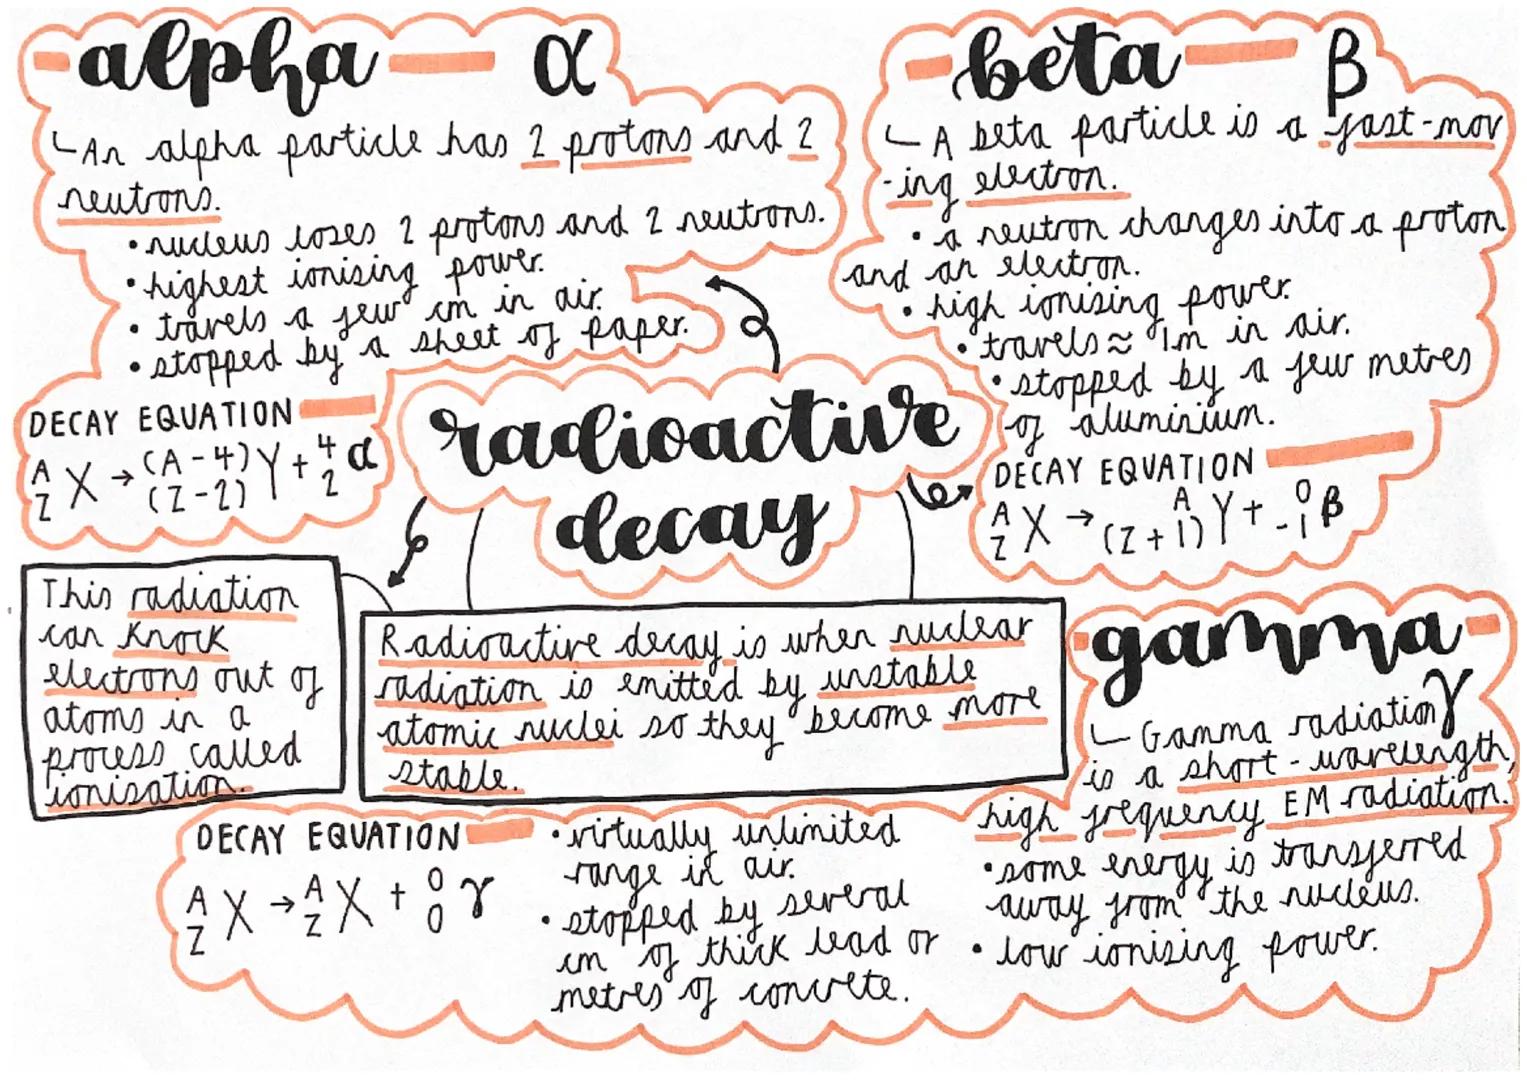 alpha α
An alpha particle has 2 protons and 2
neutrons.
• nucleus loses 2 protons and 2 neutrons.
• highest ionising power.
• travels a few cm in air.
• stopped by a sheet of paper.
DECAY EQUATION
A/Z X → (A-4)/(Z-2) Y + 4/2 α
beta β
A beta particle is a fast-mov
-ing electron.
• a neutron changes into a proton
and an electron.
• high ionising power.
• travels ≈ 1m in air.
• stopped by a few metres
of aluminium.
DECAY EQUATION
A/Z X → A/(Z+1) Y + 0/-1 β
radioactive
decay
This radiation
can knock
electrons out of
atoms in a
process called
ionisation.
Radioactive decay is when nuclear
radiation is emitted by unstable
atomic nuclei so they become more
stable.
gamma
γ
Gamma radiation
is a short-wavelength,
high frequency EM radiation.
• some energy is transferred
away from the nucleus.
• low ionising power.
• virtually unlimited
range in air.
• stopped by several
cm of thick lead or
metres of concrete.
DECAY EQUATION
A/Z X → A/Z X + 0/0 γ